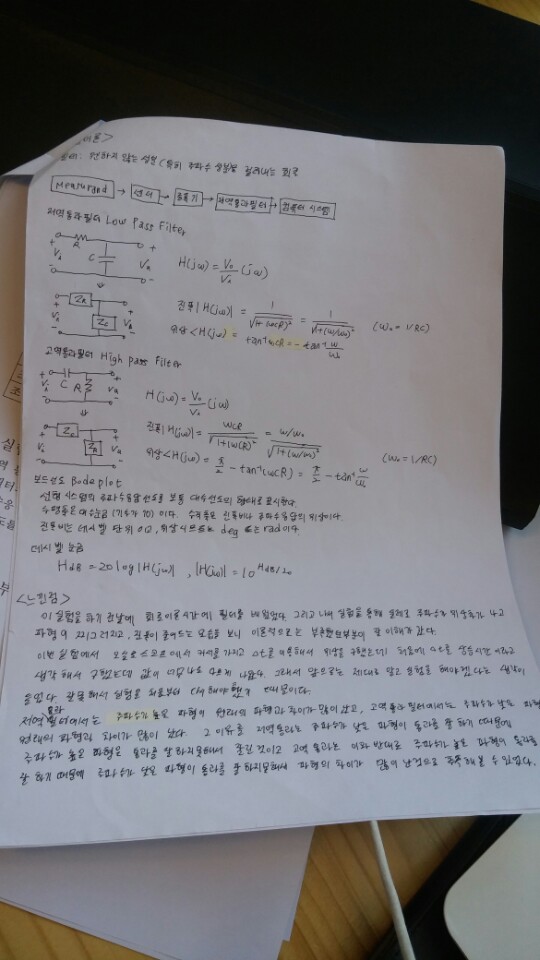 이론>
원하지 않는 성분(특히 주파수 성분)을 걸러내는 회로
Measurand → 센서 → 증폭기 → 저역통과필터 → 컴퓨터 시스템
저역통과필터 Low Pass Filter
+ R + C
H(jω) = Vo/Vi (jω)
ZR Zc
진폭 |H(jω)| = 1/√(1+(ωCR)²) = 1/√(1+(ω/ω₀)²) (ω₀ = 1/RC)
위상 <H(jω) = tan⁻¹ωCR = -tan⁻¹ ω/ω₀
고역통과필터 High pass Filter
+ C R +
H(jω) = Vo/Vi (jω)
Zc ZR
진폭 |H(jω)| = ωCR/√(1+(ωCR)²) = ω/ω₀/√(1+(ω/ω₀)²) (ω₀ = 1/RC)
위상 <H(jω) = π/2 - tan⁻¹(ωCR) = π/2 - tan⁻¹ ω/ω₀
보드선도 Bode plot
선형 시스템의 주파수응답선도로 보통 대수선도의 형태로 표시한다.
수평축은 대수눈금(기수가 10)이다. 수직축은 진폭비나 주파수응답의 위상이다.
진폭비는 데시벨 단위이고, 위상시프트는 deg 또는 rad이다.
데시벨 눈금
HdB = 20log|H(jω)|, |H(jω)| = 10^HdB/20
<느낀점>
이 실험을 하기 전날에 회로이론시간에 필터를 배웠었다. 그리고 나서 실험을 통해 실제로 주파수와 위상차가 나고
파형이 찌그러지고, 진폭이 줄어드는 모습을 보니 이론적으로는 부족했던부분이 잘 이해가 갔다.
이번 실험에서 오실로스코프에서 커서를 가지고 Δt를 이용해서 위상을 구했는데 처음에 Δt를 상승시간이라고
생각해서 구했는데 값이 너무나도 다르게 나왔다. 그래서 앞으로는 제대로 알고 실험을 해야겠다는 생각이
들었다. 잘못해서 실험을 처음부터 다시해야했기 때문이다.
저역통과필터에서는 주파수가 높은 파형이 원래의 파형과 차이가 많이 났고, 고역통과필터에서는 주파수가 낮은 파형
원래의 파형과 차이가 많이 났다. 그 이유를 저역통과는 주파수가 낮은 파형이 통과를 잘 하기 때문에
주파수가 높은 파형은 통과를 잘 하지못해서 줄인것이고 고역 통과는 이와 반대로 주파수가 높은 파형이 통과를
잘 하기 때문에 주파수가 낮은 파형이 통과를 잘 하지못해서 파형의 차이가 많이 난것으로 추측해볼 수 있었다.